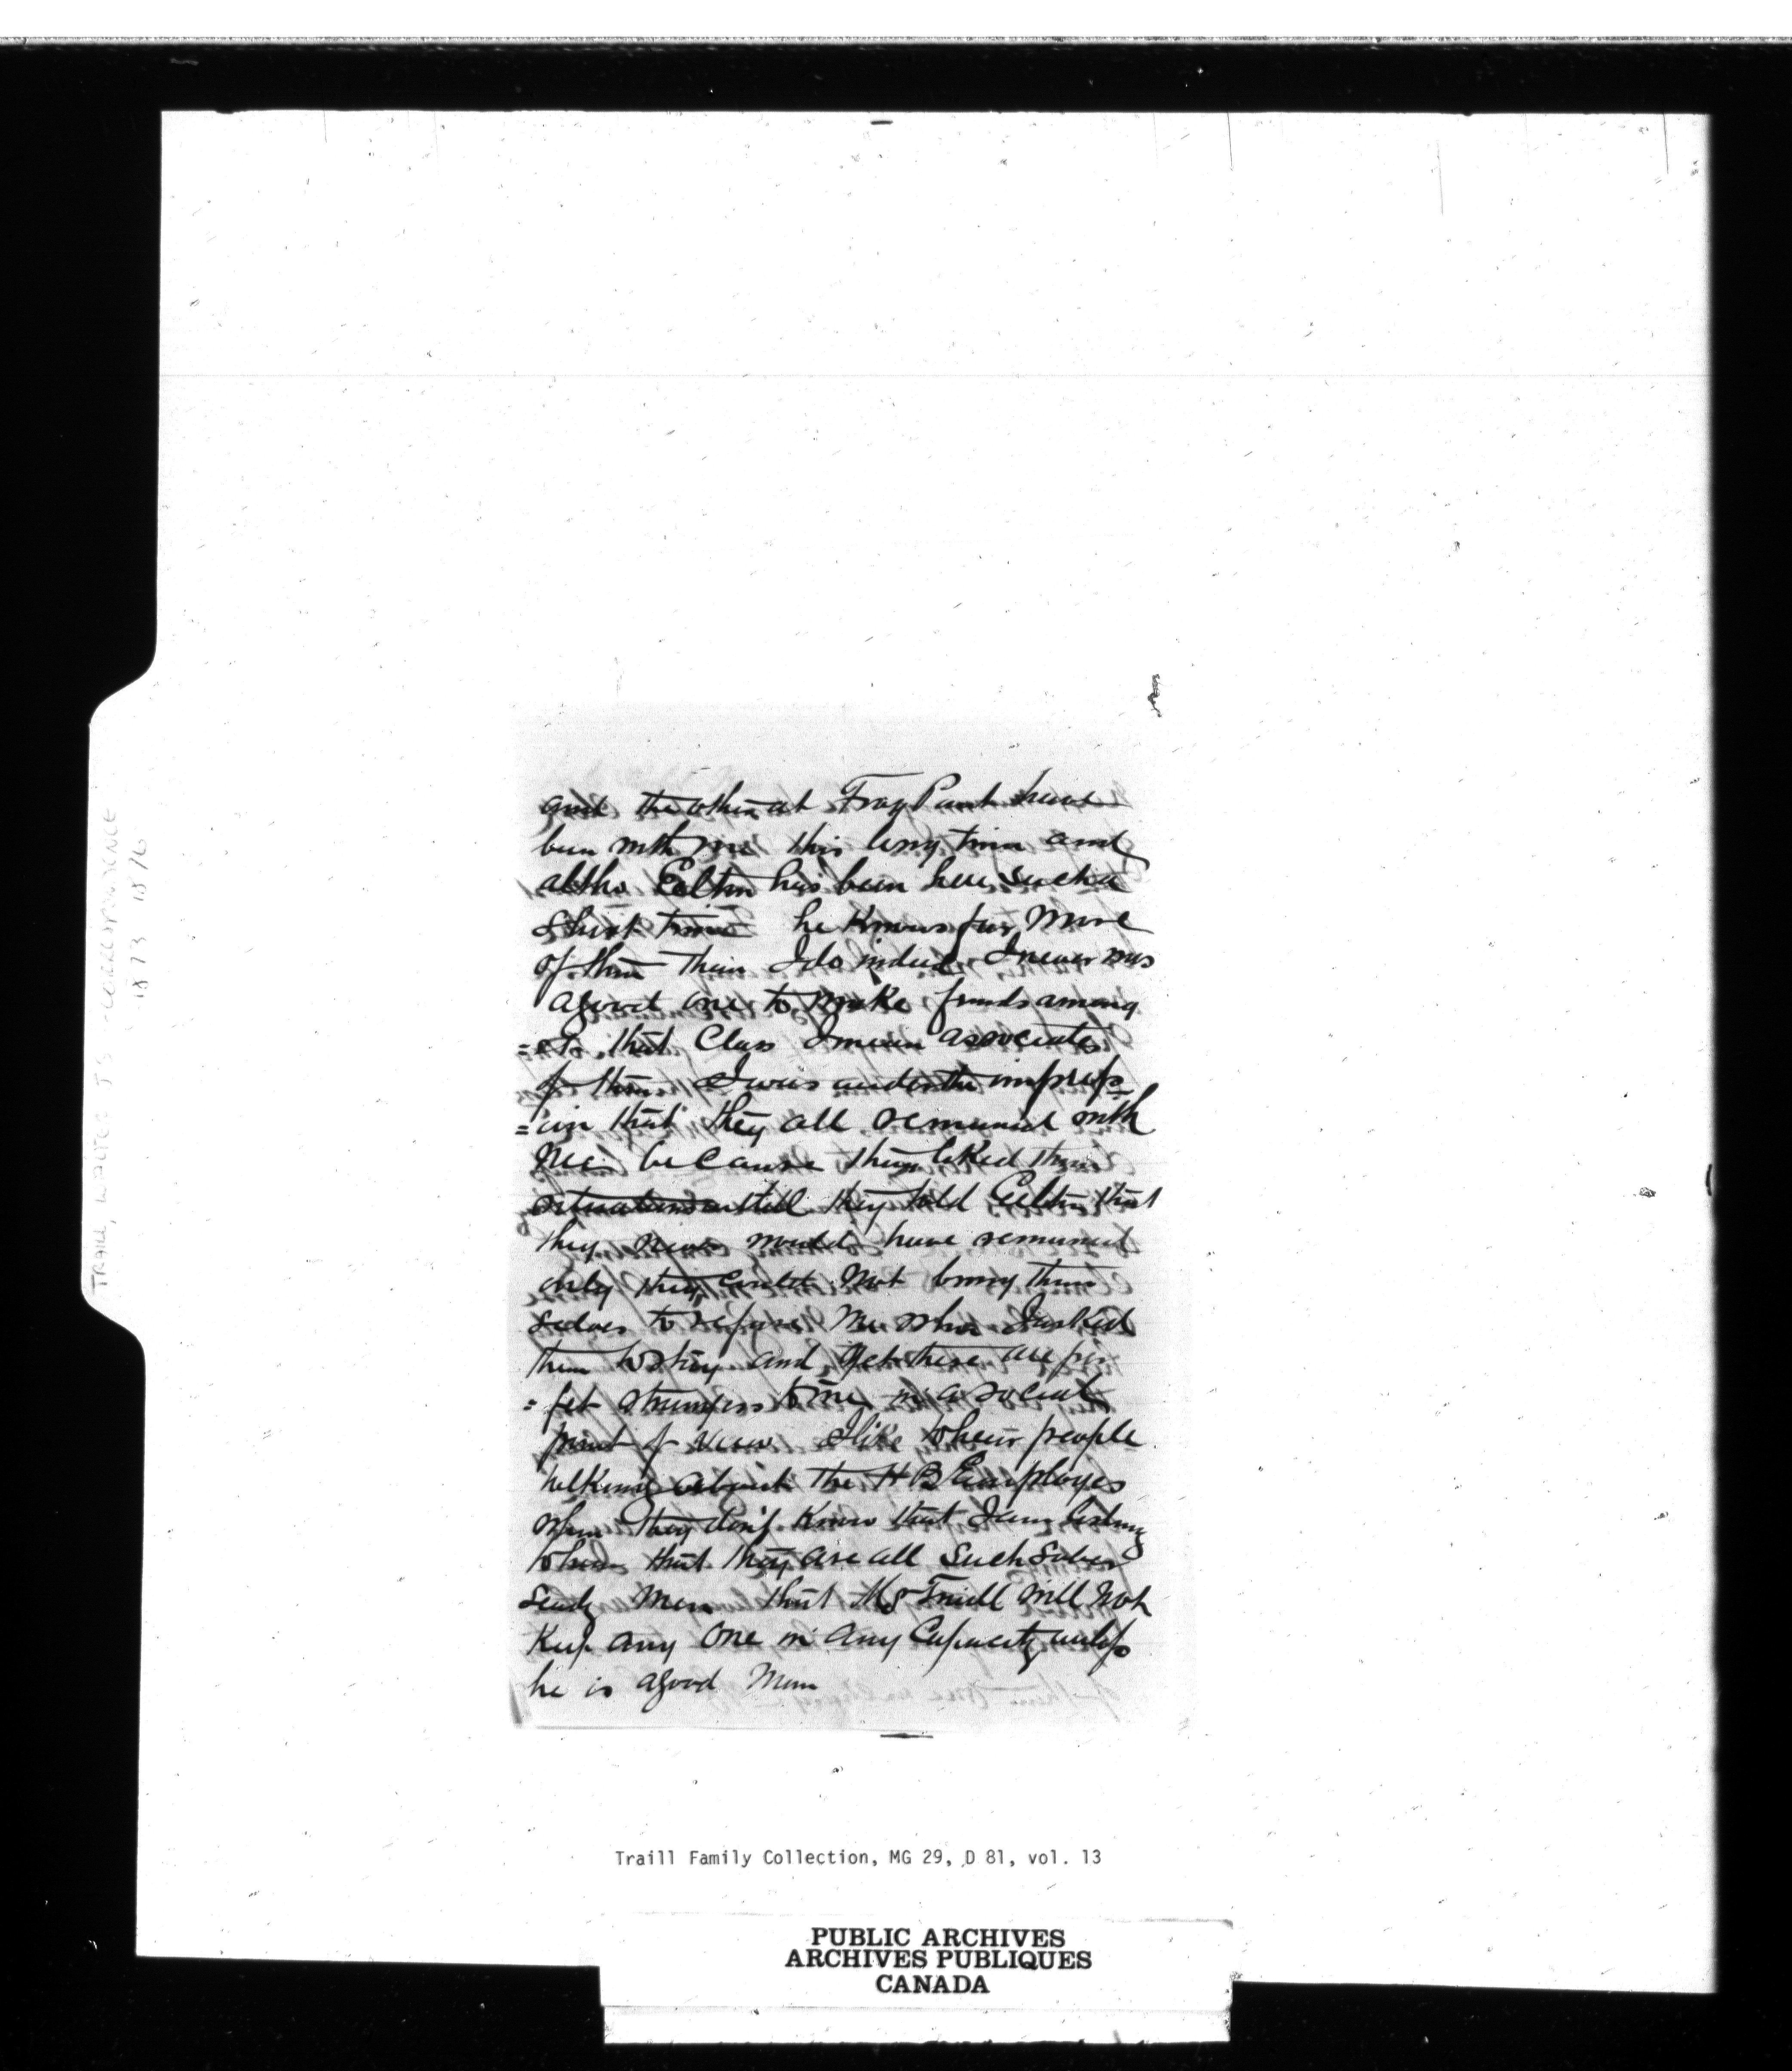 and the other at Frog Point have
been with me this long time and
altho Eelton has been here such a
short time he knows far more
of them than I do indeed I never was
a good one to make friends among
=st that Class I mean associates
of them I was under the impress
=ion that they all remained with
me because they liked their
situations still they told Eelton that
they never would have remained
only they could not bring them
selves to refuse me when I asked
them to stay and yet these are per
=fet strangers to me in a social
point of view I like to hear people
talking about the HB Employes
when they don't know that I am listning
to them that they are all such sober
steady Men that Mr Traill will not
Keep any one in any Capacity unless
he is a good Man
TRAILL, WALTER J.S. CORRESPONDENCE
1873 1876
Traill Family Collection, MG 29, D 81, vol. 13
PUBLIC ARCHIVES
ARCHIVES PUBLIQUES
CANADA